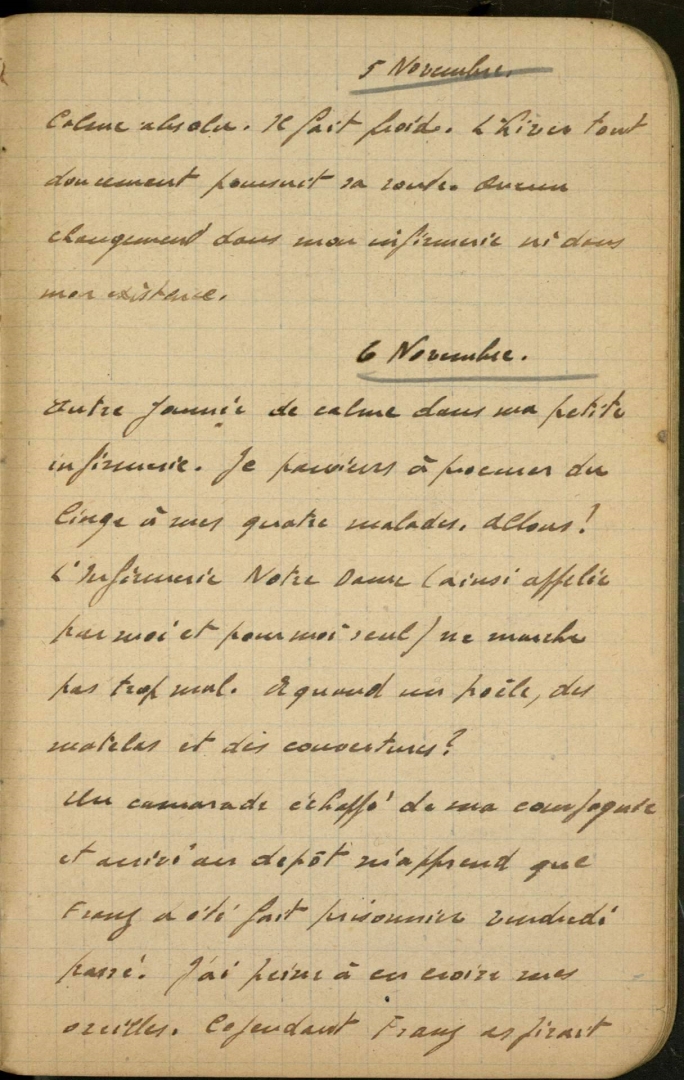 5 Novembre.
Calme absolu. Il fait froid. L'hiver tout
doucement poursuit sa route. Aucun
changement dans mon infirmerie ni dans
mon existence.
6 Novembre.
Autre journée de calme dans ma petite
infirmerie. Je parviens à procurer du
linge à mes quatre malades. Allons!
L'Infirmerie Notre Dame (ainsi appelée
par moi et pour moi seul) ne marche
pas trop mal. A quand un poêle, des
matelas et des couvertures?
Un camarade échappé de ma compagnie
et arrivé au dépôt m'apprend que
Franz a été fait prisonnier vendredi
passé. J'ai peine à en croire mes
oreilles. Cependant Franz aspirait